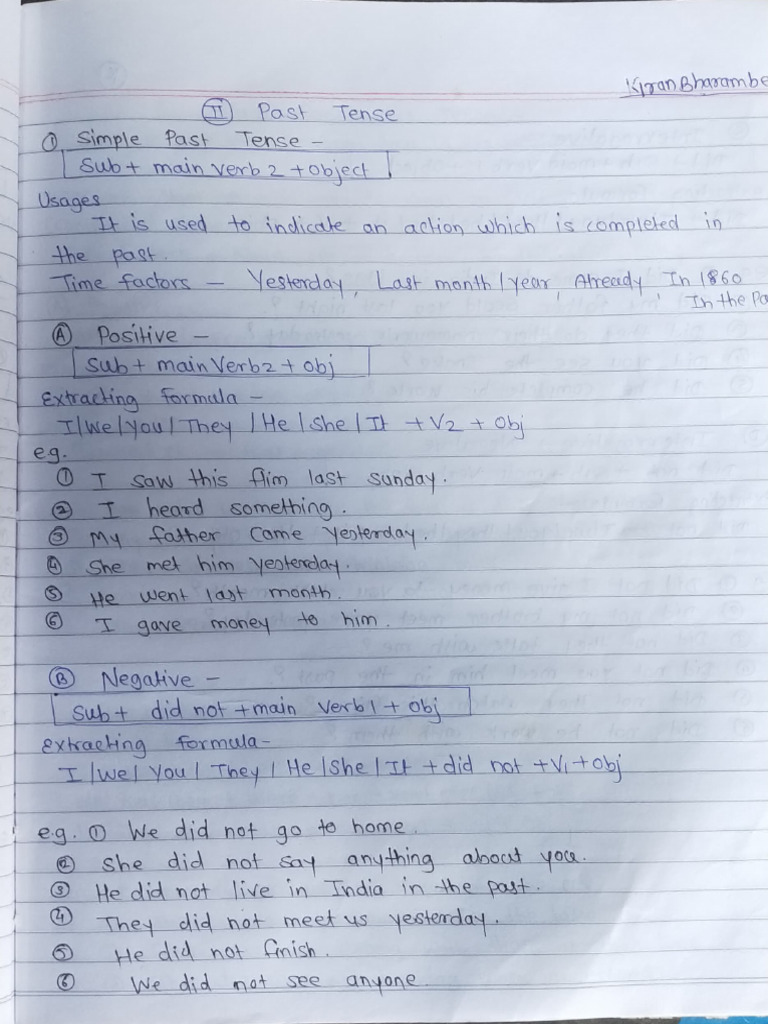 Kiran Bharambe
II Past Tense
① Simple Past Tense –
Sub + main verb 2 + object
Usages
It is used to indicate an action which is completed in
the past.
Time factors – Yesterday, Last month/year, Already, In 1860
In the Pa
Ⓐ Positive –
Sub + main Verb2 + obj
Extracting formula –
I/We/You/They/He/She/It + V2 + Obj
eg.
① I saw this flim last sunday.
② I heard something.
③ My father came yesterday.
④ She met him yesterday.
⑤ He went last month.
⑥ I gave money to him.
Ⓑ Negative –
Sub + did not + main verb1 + obj
Extracting formula –
I/We/You/They/He/She/It + did not + V1 + Obj
e.g. ① We did not go to home.
② She did not say anything about you.
③ He did not live in India in the past.
④ They did not meet us yesterday.
⑤ He did not finish.
⑥ We did not see anyone.